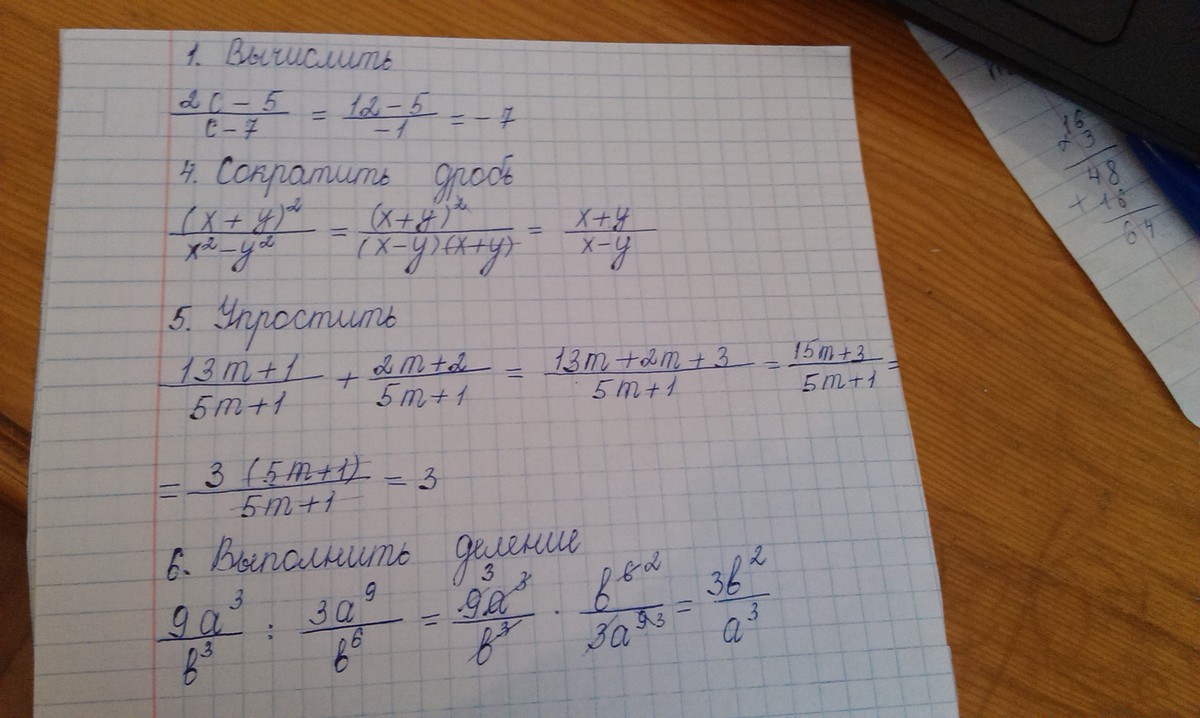 1. Вычислить
(2c - 5)/(c - 7) = (12 - 5)/(-1) = -7
4. Сократить дробь
(x + y)²/(x² - y²) = (x + y)²/((x - y)(x + y)) = (x + y)/(x - y)
5. Упростить
(13m + 1)/(5m + 1) + (2m + 2)/(5m + 1) = (13m + 2m + 3)/(5m + 1) = (15m + 3)/(5m + 1) =
= 3 (5m + 1)/(5m + 1) = 3
6. Выполнить деление
9a³/b³ : 3a⁹/b⁶ = 9 3 a³/b³ · b⁶ ²/3a⁹ ³ = 3b²/a³
16
× 3
48
+ 16
64